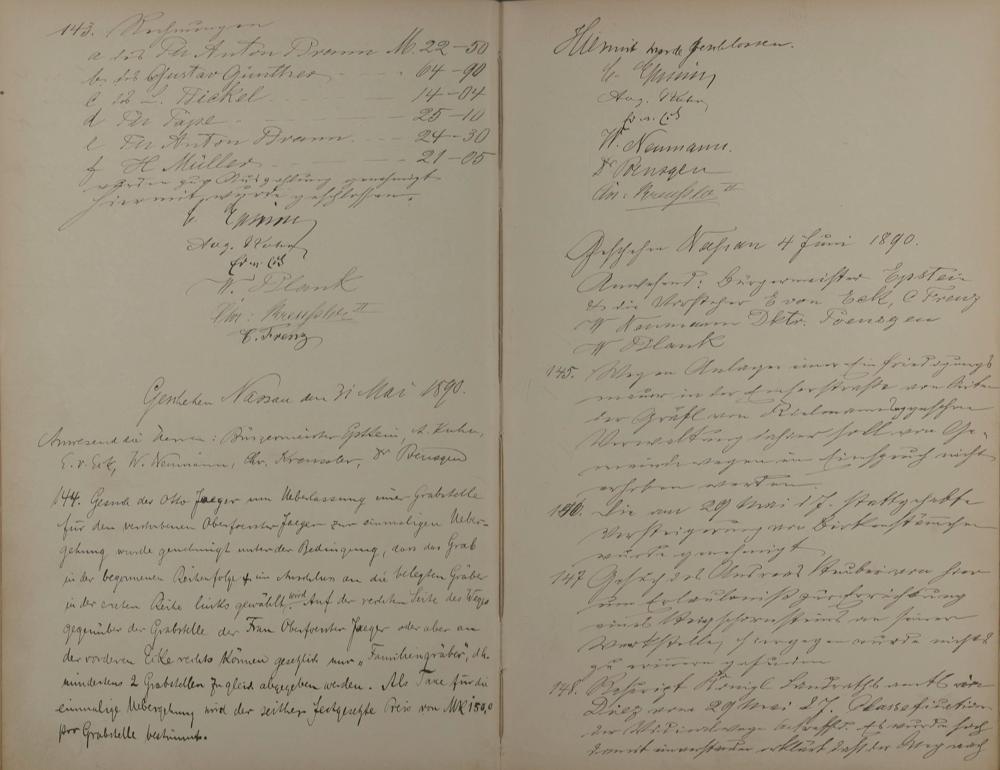 143. Rechnungen
a des Fr Anton Bramm M. 22-50
b. des Gustav Günther 64-90
c des L. Bickel 14-04
d Fr Pape 25-10
e Fr Anton Bramm. 24-30
f H Müller 21-05
wurden zur Auszahlung genehmigt
Hiermit wurde geschlossen.
Aug. Kuhn
W. Plank
Chr: Kreussler II
C. Frenz
Geschehen Nassau den 31 Mai 1890.
Anwesend die Herren: Bürgermeister Epstein, A. Kuhn,
E. v. Eck, W. Neumann, Chr. Kreussler, Dr Poensgen
144. Gesuch des Otto Jaeger um Ueberlassung einer Grabstelle
für den verstorbenen Oberfoerster Jaeger zur einmaligen Ueber-
gehung wurde genehmigt unter der Bedingung, dass das Grab
in der begonnenen Reihenfolge & im Anschluss an die belegten Gräber
in der ersten Reihe links gewählt wird. Auf der rechten Seite des Weges
gegenüber der Grabstelle der Frau Oberfoerster Jaeger oder aber an
der vorderen Ecke rechts können gesetzlich nur „Familiengräber", d.h.
mindestens 2 Grabstellen zugleich abgegeben werden. Als Taxe für die
einmalige Uebergehung wird der seither festgesetzte Preis von Mk 150,0
pro Grabstelle bestimmt.
Hiermit wurde geschlossen.
Aug. Kuhn
W. Neumann.
Dr Poensgen
Chr: Kreussler II
Geschehen Nassau 4 Juni 1890.
Anwesend: Bürgermeister Epstein
& die Vorsteher E von Eck, C Frenz
W Neumann Dktr. Poensgen
W Plank
145. Wegen Anlage einer Einfriedigungs
mauer in der Emserstraße von Seiten
der Gräfl von Kielmannsegge'schen
Verwaltung dahier soll von Ge-
meindewegen ein Einspruch nicht
erhoben werden.
146. Die am 29 Mai d J. stattgehabte
Versteigerung von Birkenstämmchen
wurde genehmigt
147 Gesuch des Andreas von hier
um Erlaubniß zur Errichtung
eines Steigschornsteins an seiner
Werkstelle, hiergegen wurde nichts
zu erinnern gefunden
148. Rescript Königl Landrathsamts in
Diez vom 29 Mai d J. Classification
der Vicinalwege betreffd. Es wurde sich
damit einverstanden erklärt daß der Weg nach